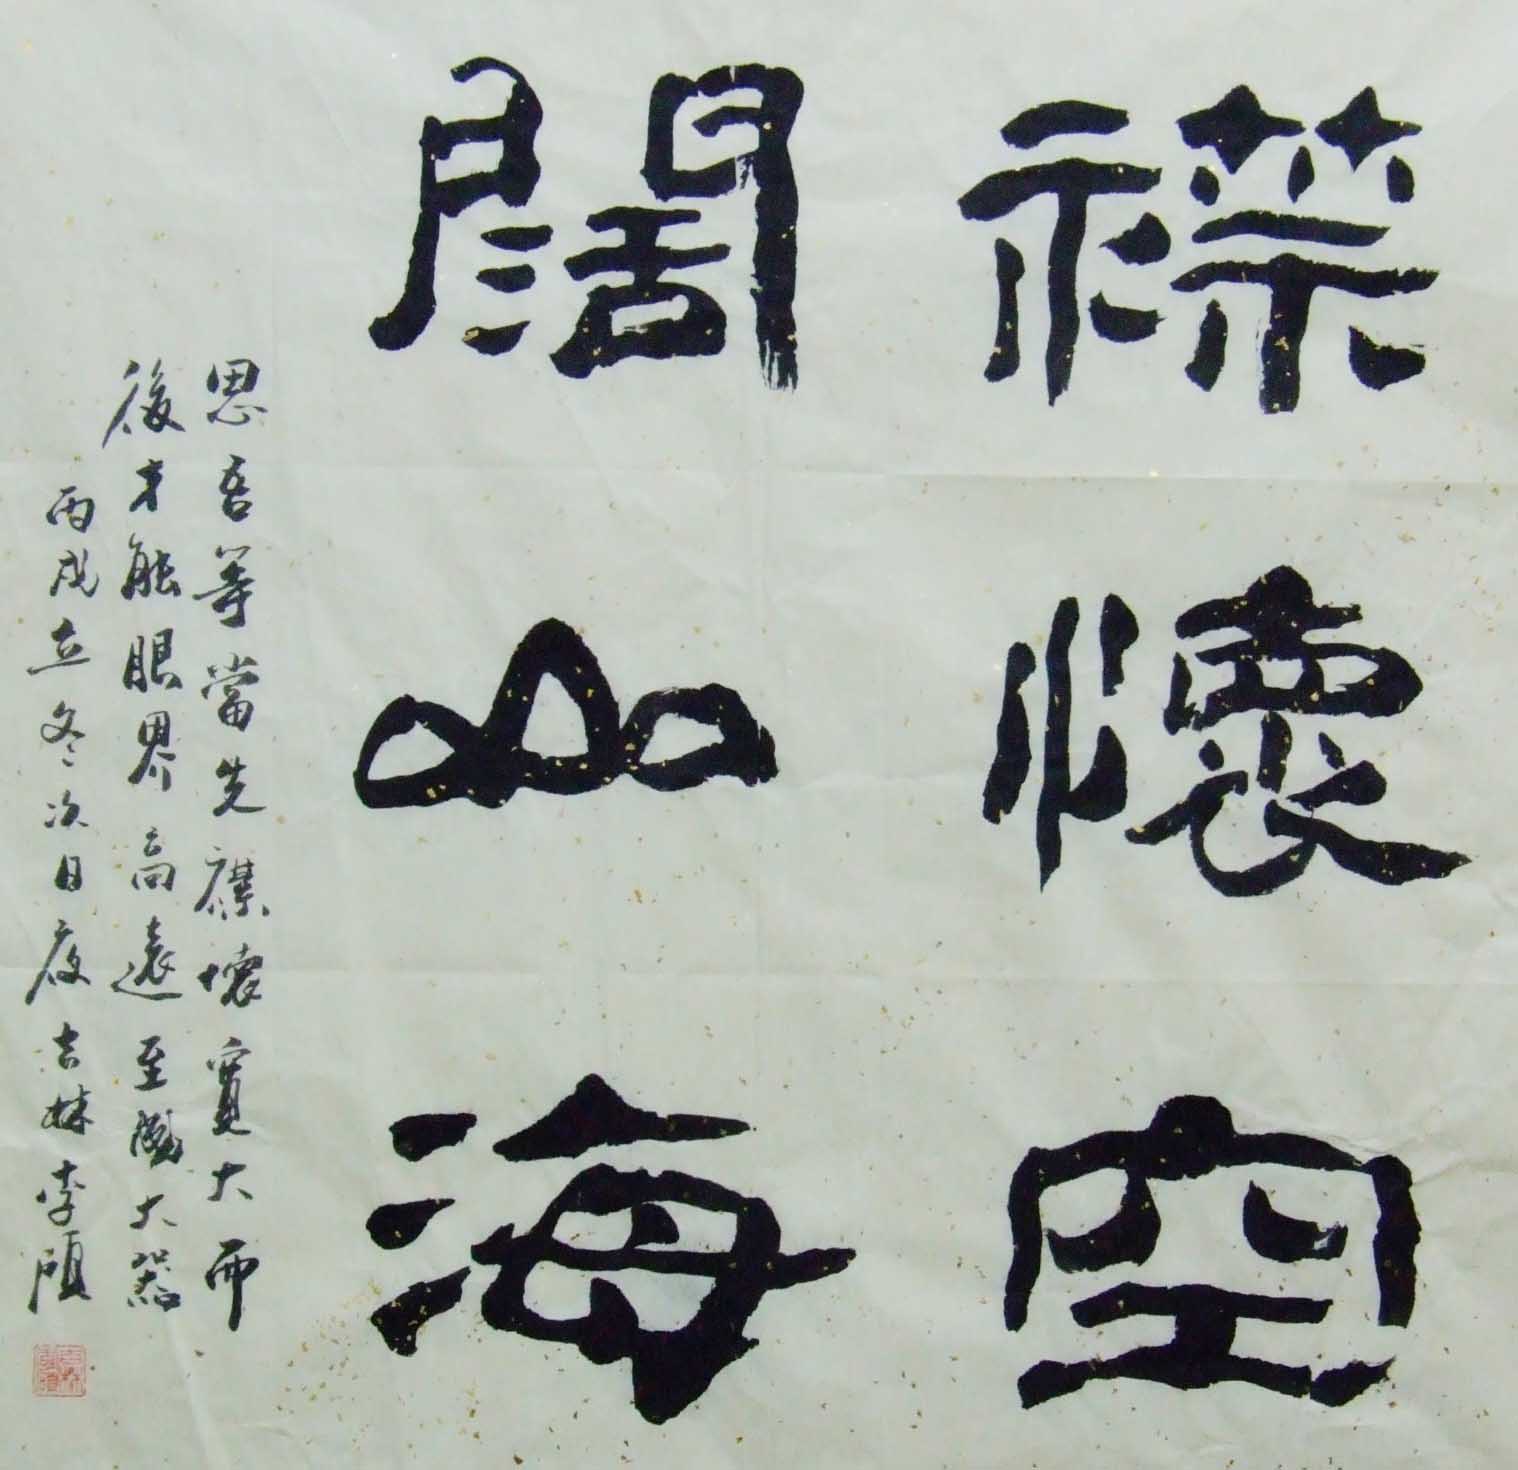 襟懷空
闊山海
思吾等當先襟懷寬大而
後才能眼界高遠至成大器
丙戌立冬次日夜吉林李頎